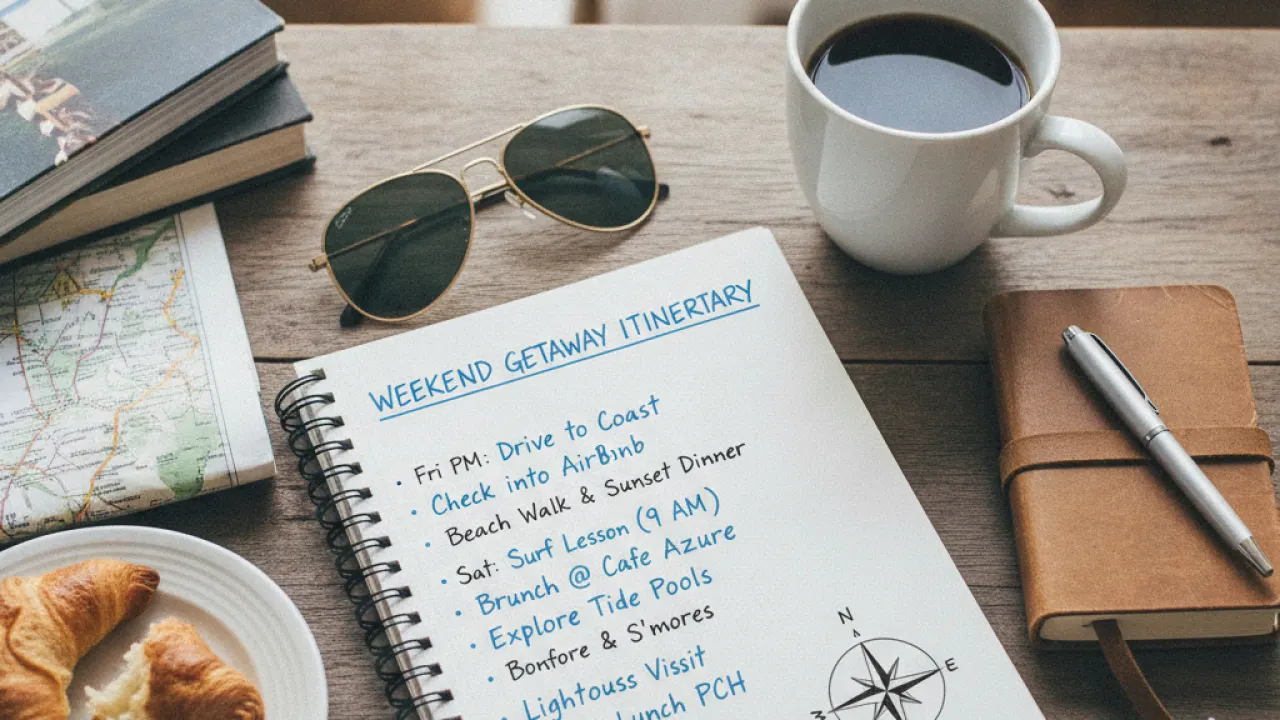 WEEKEND GETAWAY ITINERTARY
• Fri PM: Drive to Coast
• Check into AirBnb
• Beach Walk & Sunset Dinner
• Sat: Surf Lesson (9 AM)
• Brunch @ Cafe Azure
• Explore Tide Pools
• Bonfore & S'mores
• Lightouss Vissit
unch PCH
N
E